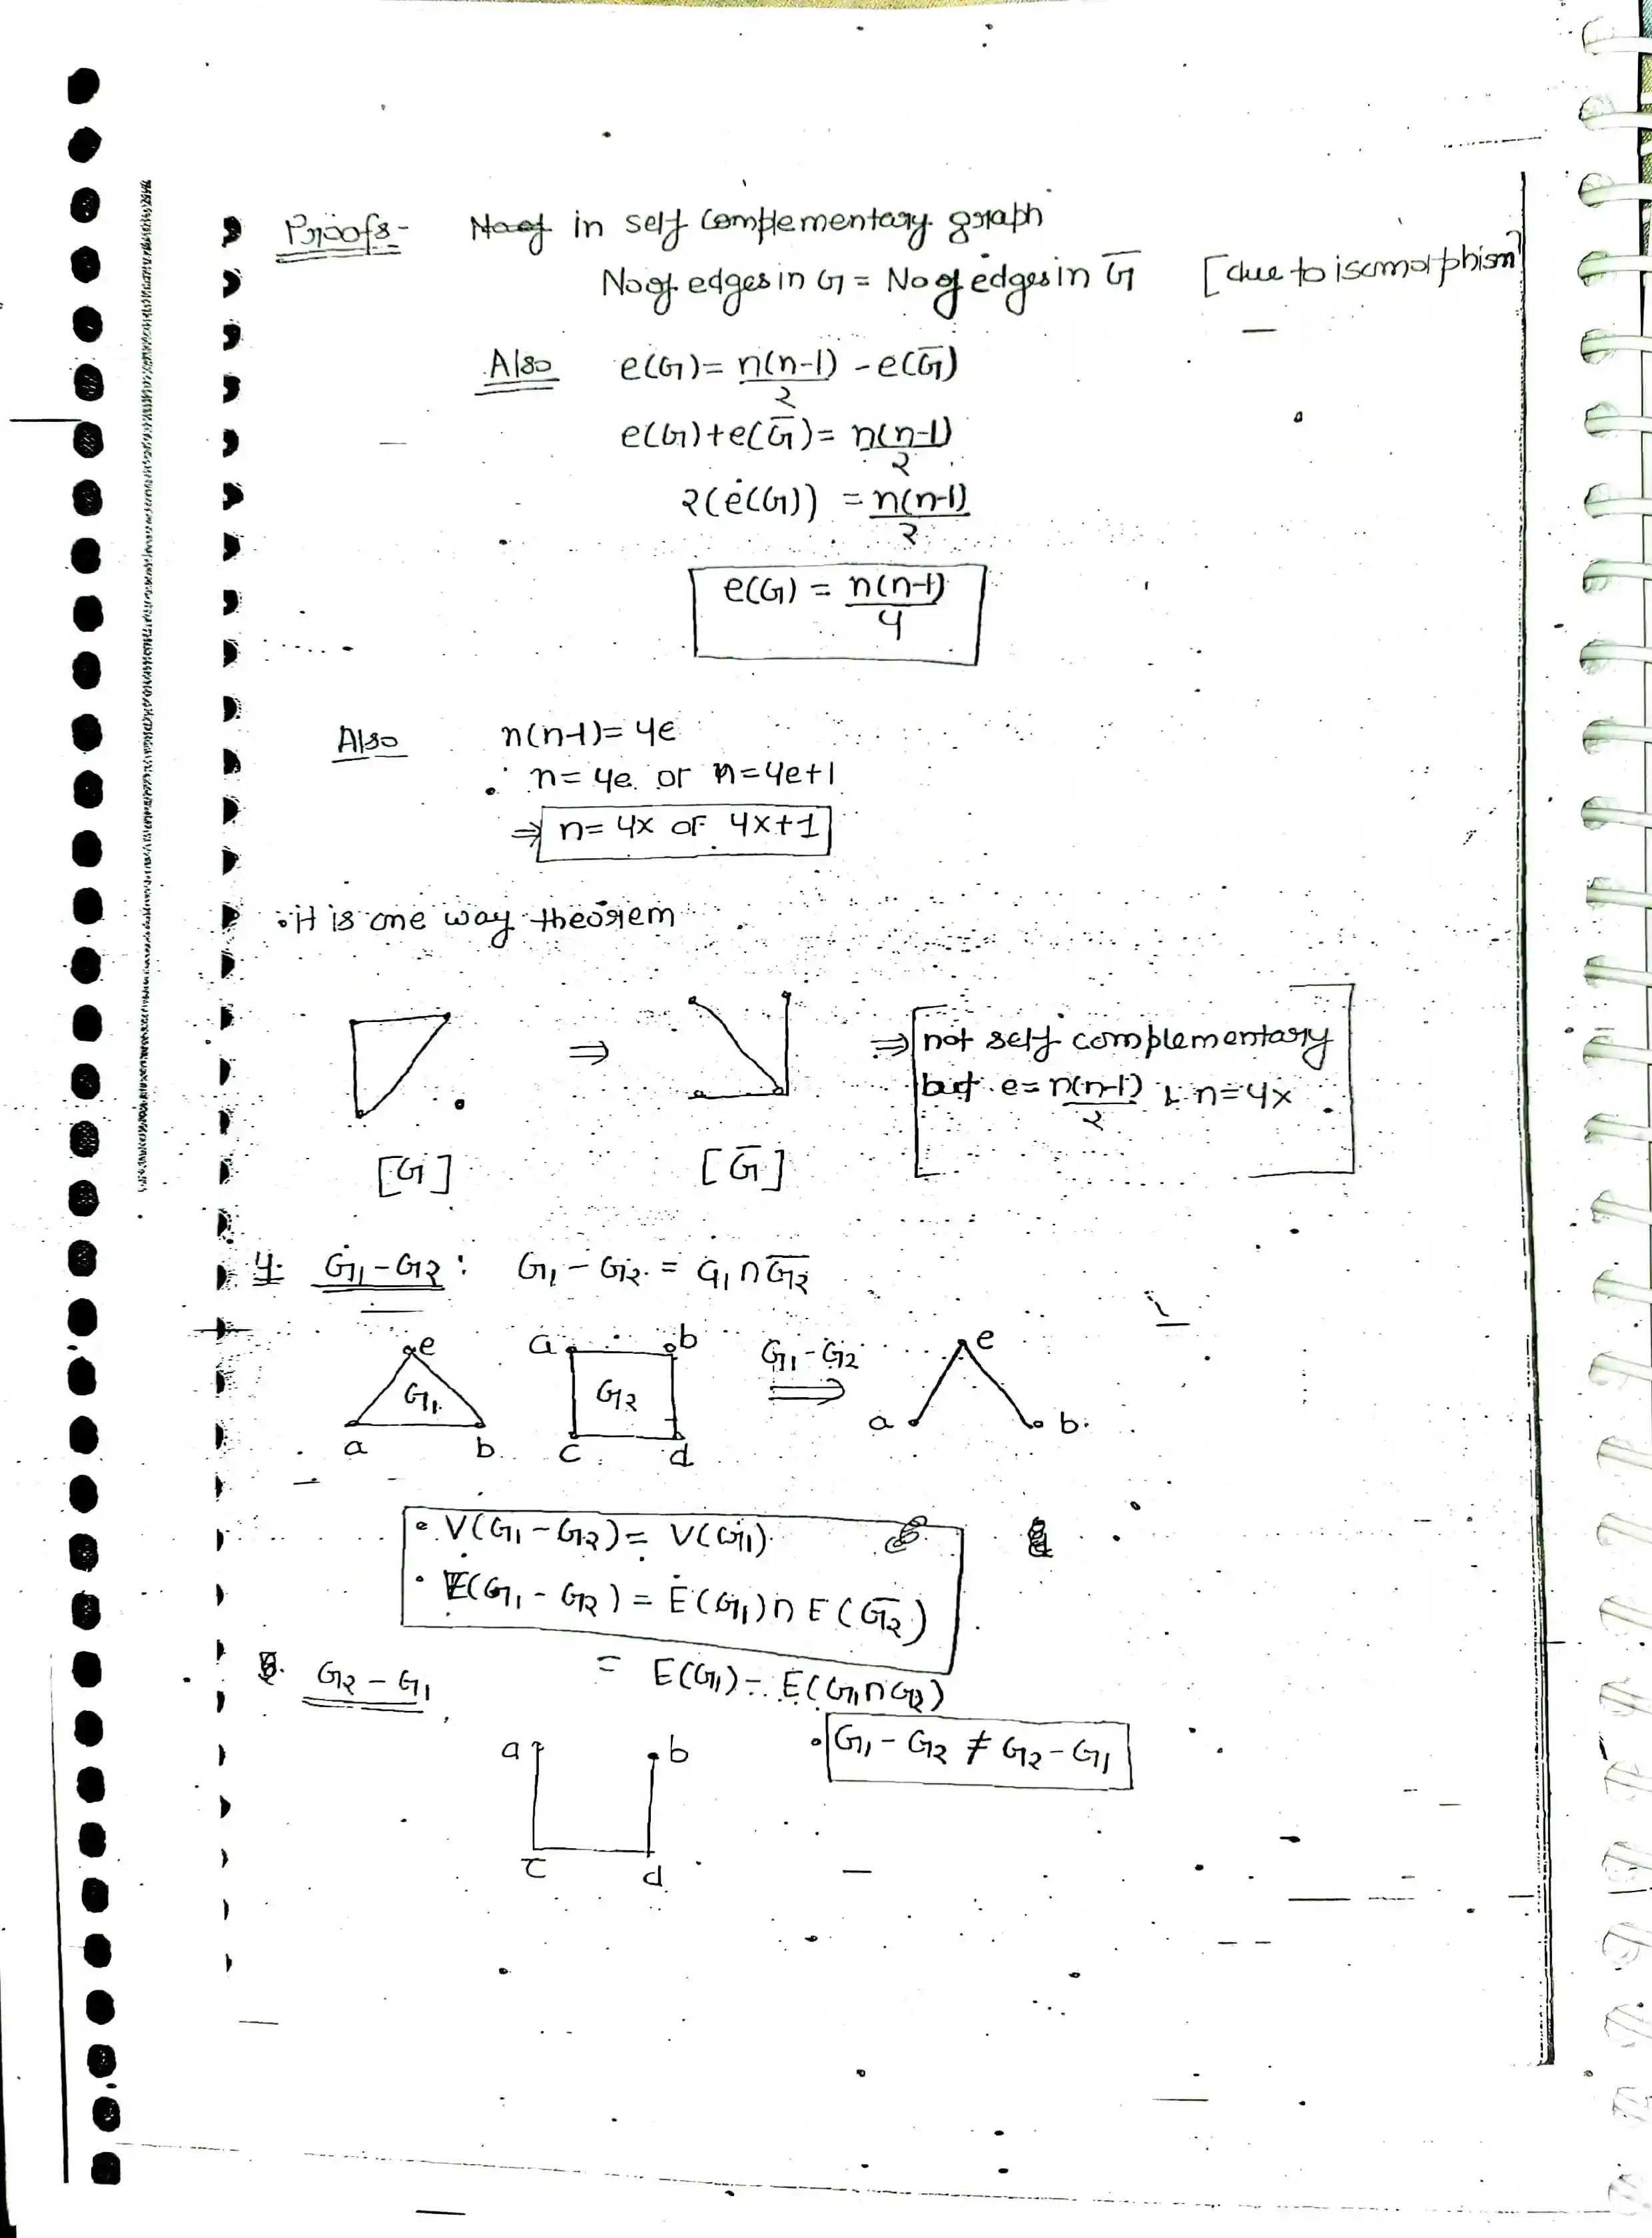 Proofs- No of in self complementary graph
No of edges in G = No of edges in G̅ [due to isomorphism]
Also e(G) = n(n-1)/2 - e(G̅)
e(G)+e(G̅) = n(n-1)/2
2(e(G)) = n(n-1)/2
e(G) = n(n-1)/4
Also n(n-1)=4e
∴ n=4e or n=4e+1
⇒ n=4x or 4x+1
•it is one way theorem
⇒ ⇒ not self complementary
but e= n(n-1)/2 & n=4x
[G] [G̅]
4. G1-G2: G1-G2 = G1∩G̅2
e a b G1-G2 e
G1 G2 ⇒
a b c d a b
• V(G1-G2) = V(G1)
• E(G1-G2) = E(G1)∩E(G̅2)
= E(G1)-E(G1∩G2)
G2-G1
a b • G1-G2 ≠ G2-G1
c d